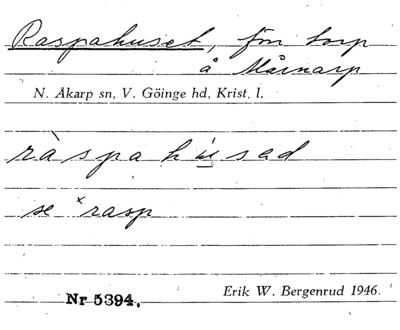 Raspahuset, förr torp
å Mårnarp
N. Åkarp sn, V. Göinge hd, Krist. l.
ràspahúsad
se ˣrasp
Nr 5394. Erik W. Bergenrud 1946.